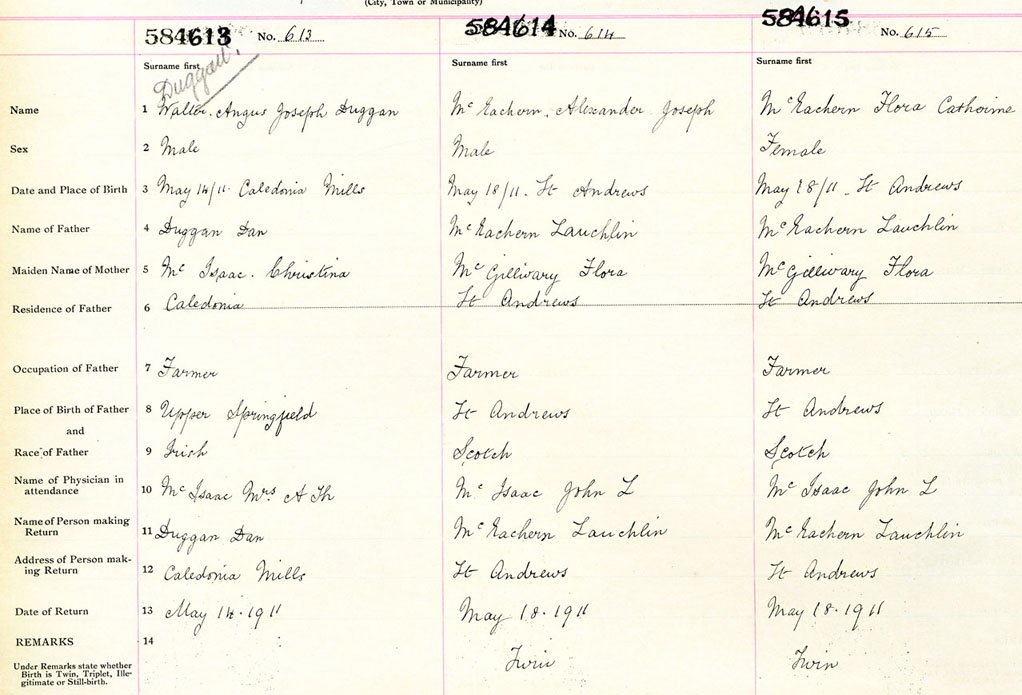 (City, Town or Municipality)
584613 No. 613 584614 No. 614 584615 No. 615
Surname first Surname first Surname first
Duggan
Name 1 Walter Angus Joseph Duggan McEachern Alexander Joseph McEachern Flora Catherine
Sex 2 Male Male Female
Date and Place of Birth 3 May 14/11 Caledonia Mills May 18/11 - St Andrews May 18/11 - St Andrews
Name of Father 4 Duggan Dan McEachern Lauchlin McEachern Lauchlin
Maiden Name of Mother 5 Mc Isaac. Christina McGillivary Flora McGillivary Flora
Residence of Father 6 Caledonia St Andrews St Andrews
Occupation of Father 7 Farmer Farmer Farmer
Place of Birth of Father 8 Upper Springfield St Andrews St Andrews
and
Race of Father 9 Irish Scotch Scotch
Name of Physician in
attendance 10 Mc Isaac Mrs A Th Mc Isaac John L Mc Isaac John L
Name of Person making
Return 11 Duggan Dan McEachern Lauchlin McEachern Lauchlin
Address of Person mak-
ing Return 12 Caledonia Mills St Andrews St Andrews
Date of Return 13 May 14 · 1911 May 18 · 1911 May 18 · 1911
REMARKS 14
Under Remarks state whether
Birth is Twin, Triplet, Ille-
gitimate or Still-birth. Twin Twin